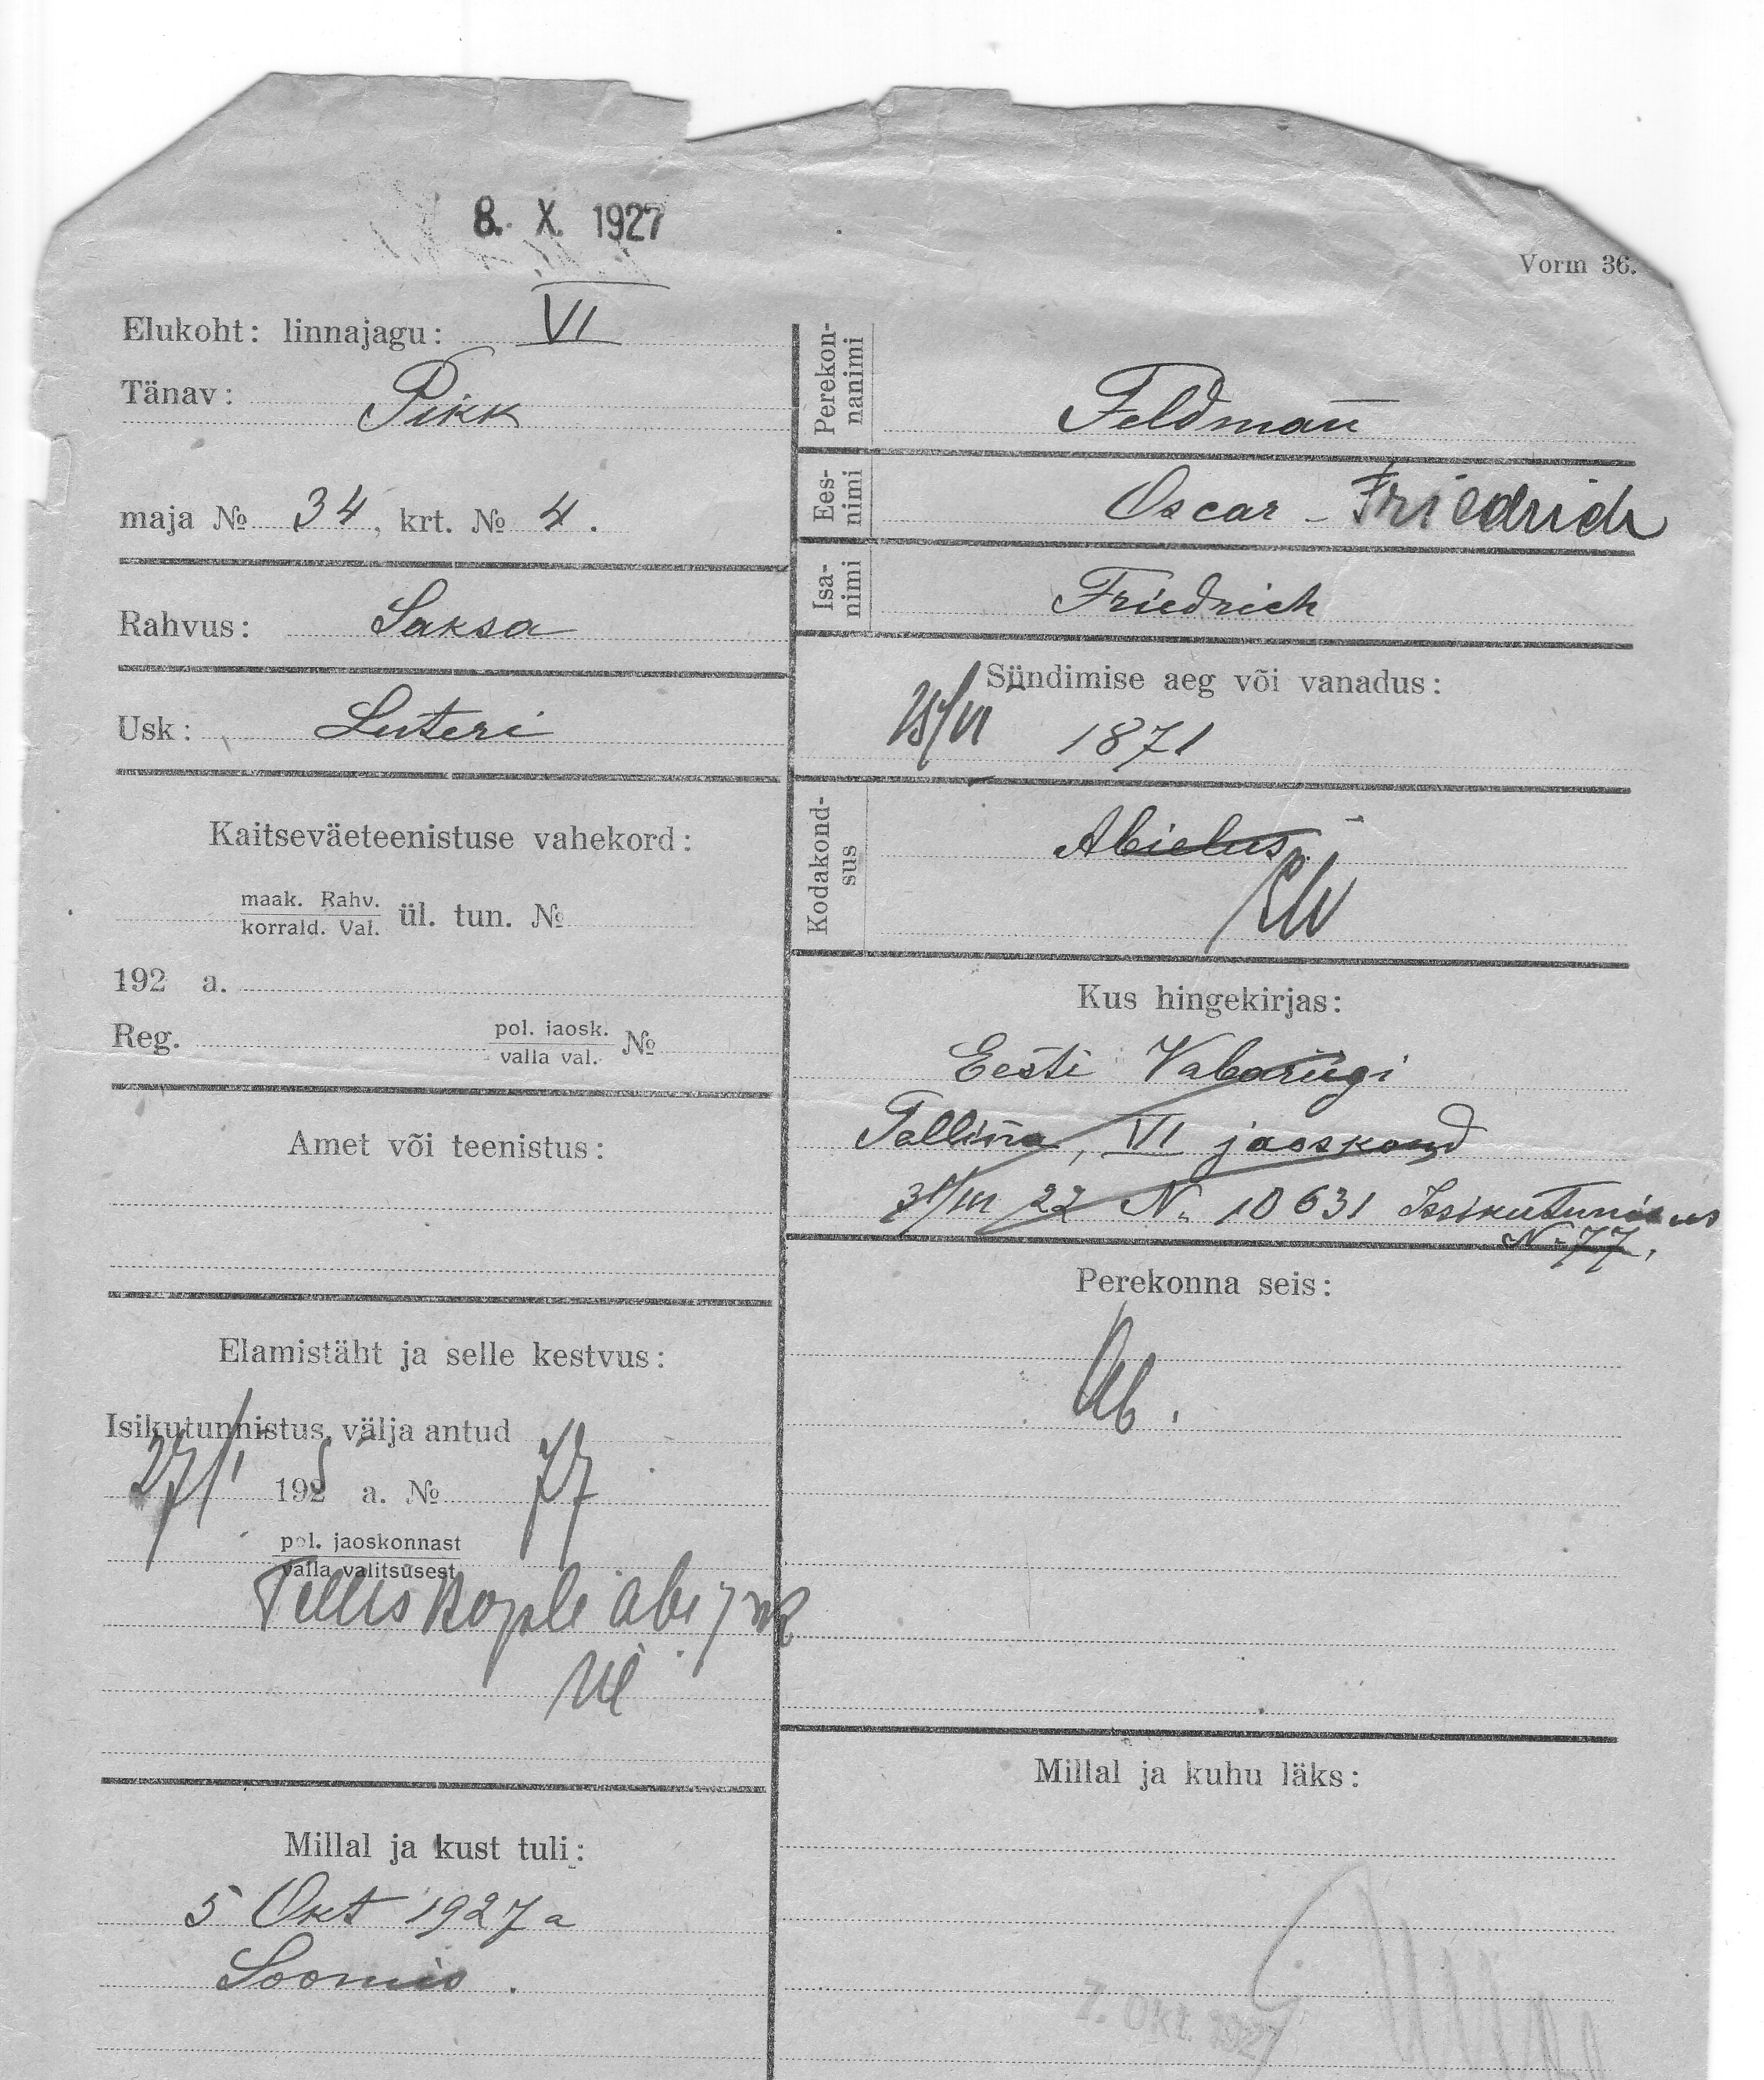 8. X. 1927
Vorm 36.
Elukoht: linnajagu: VI
Tänav: Pikk
maja № 34, krt. № 4.
Rahvus: Saksa
Usk: Luteri
Kaitseväeteenistuse vahekord:
maak. Rahv.
korrald. Val. ül. tun. №
192 a.
Reg. pol. jaosk.
valla val. №
Amet või teenistus:
Elamistäht ja selle kestvus:
Isikutunnistus välja antud
27/I 1925 a. № 77
pol. jaoskonnast
valla valitsusest
Telliskopli abi jsk
Millal ja kust tuli:
5 Okt 1927 a
Soomis.
Perekon-
nanimi
Feldmañ
Ees-
nimi
Oscar - Friedrich
Isa-
nimi
Friedrich
Sündimise aeg või vanadus:
1871
Kodakond-
sus
Abielus
EW
Kus hingekirjas:
Eesti Vabariigi
Tallina, VI jaoskond
31/III 22 N. 10631 Issikutunistus
N. 77.
Perekonna seis:
Ab.
Millal ja kuhu läks:
7. Okt. 1927